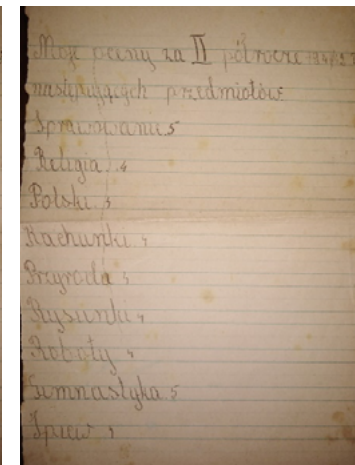 Moje oceny za II półrocze
następujących przedmiotów
Sprawowanie 5
Religia 4
Polski
Rachunki 4
Przyroda
Rysunki 4
Roboty 4
Gimnastyka 5
Śpiew